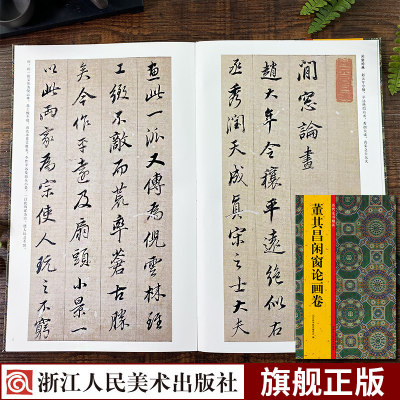 閒窓論畫
趙大年令穰平遠絶似右
丞秀潤天成真宋之士大夫
畫此一派又傳為倪雲林雖
工緻不敵而荒率蒼古勝
矣今作平遠及扇頭小景一
以此兩家為宗使人玩之不窮
董其昌闲窗论画卷
浙江人民美术出版社
旗舰正版